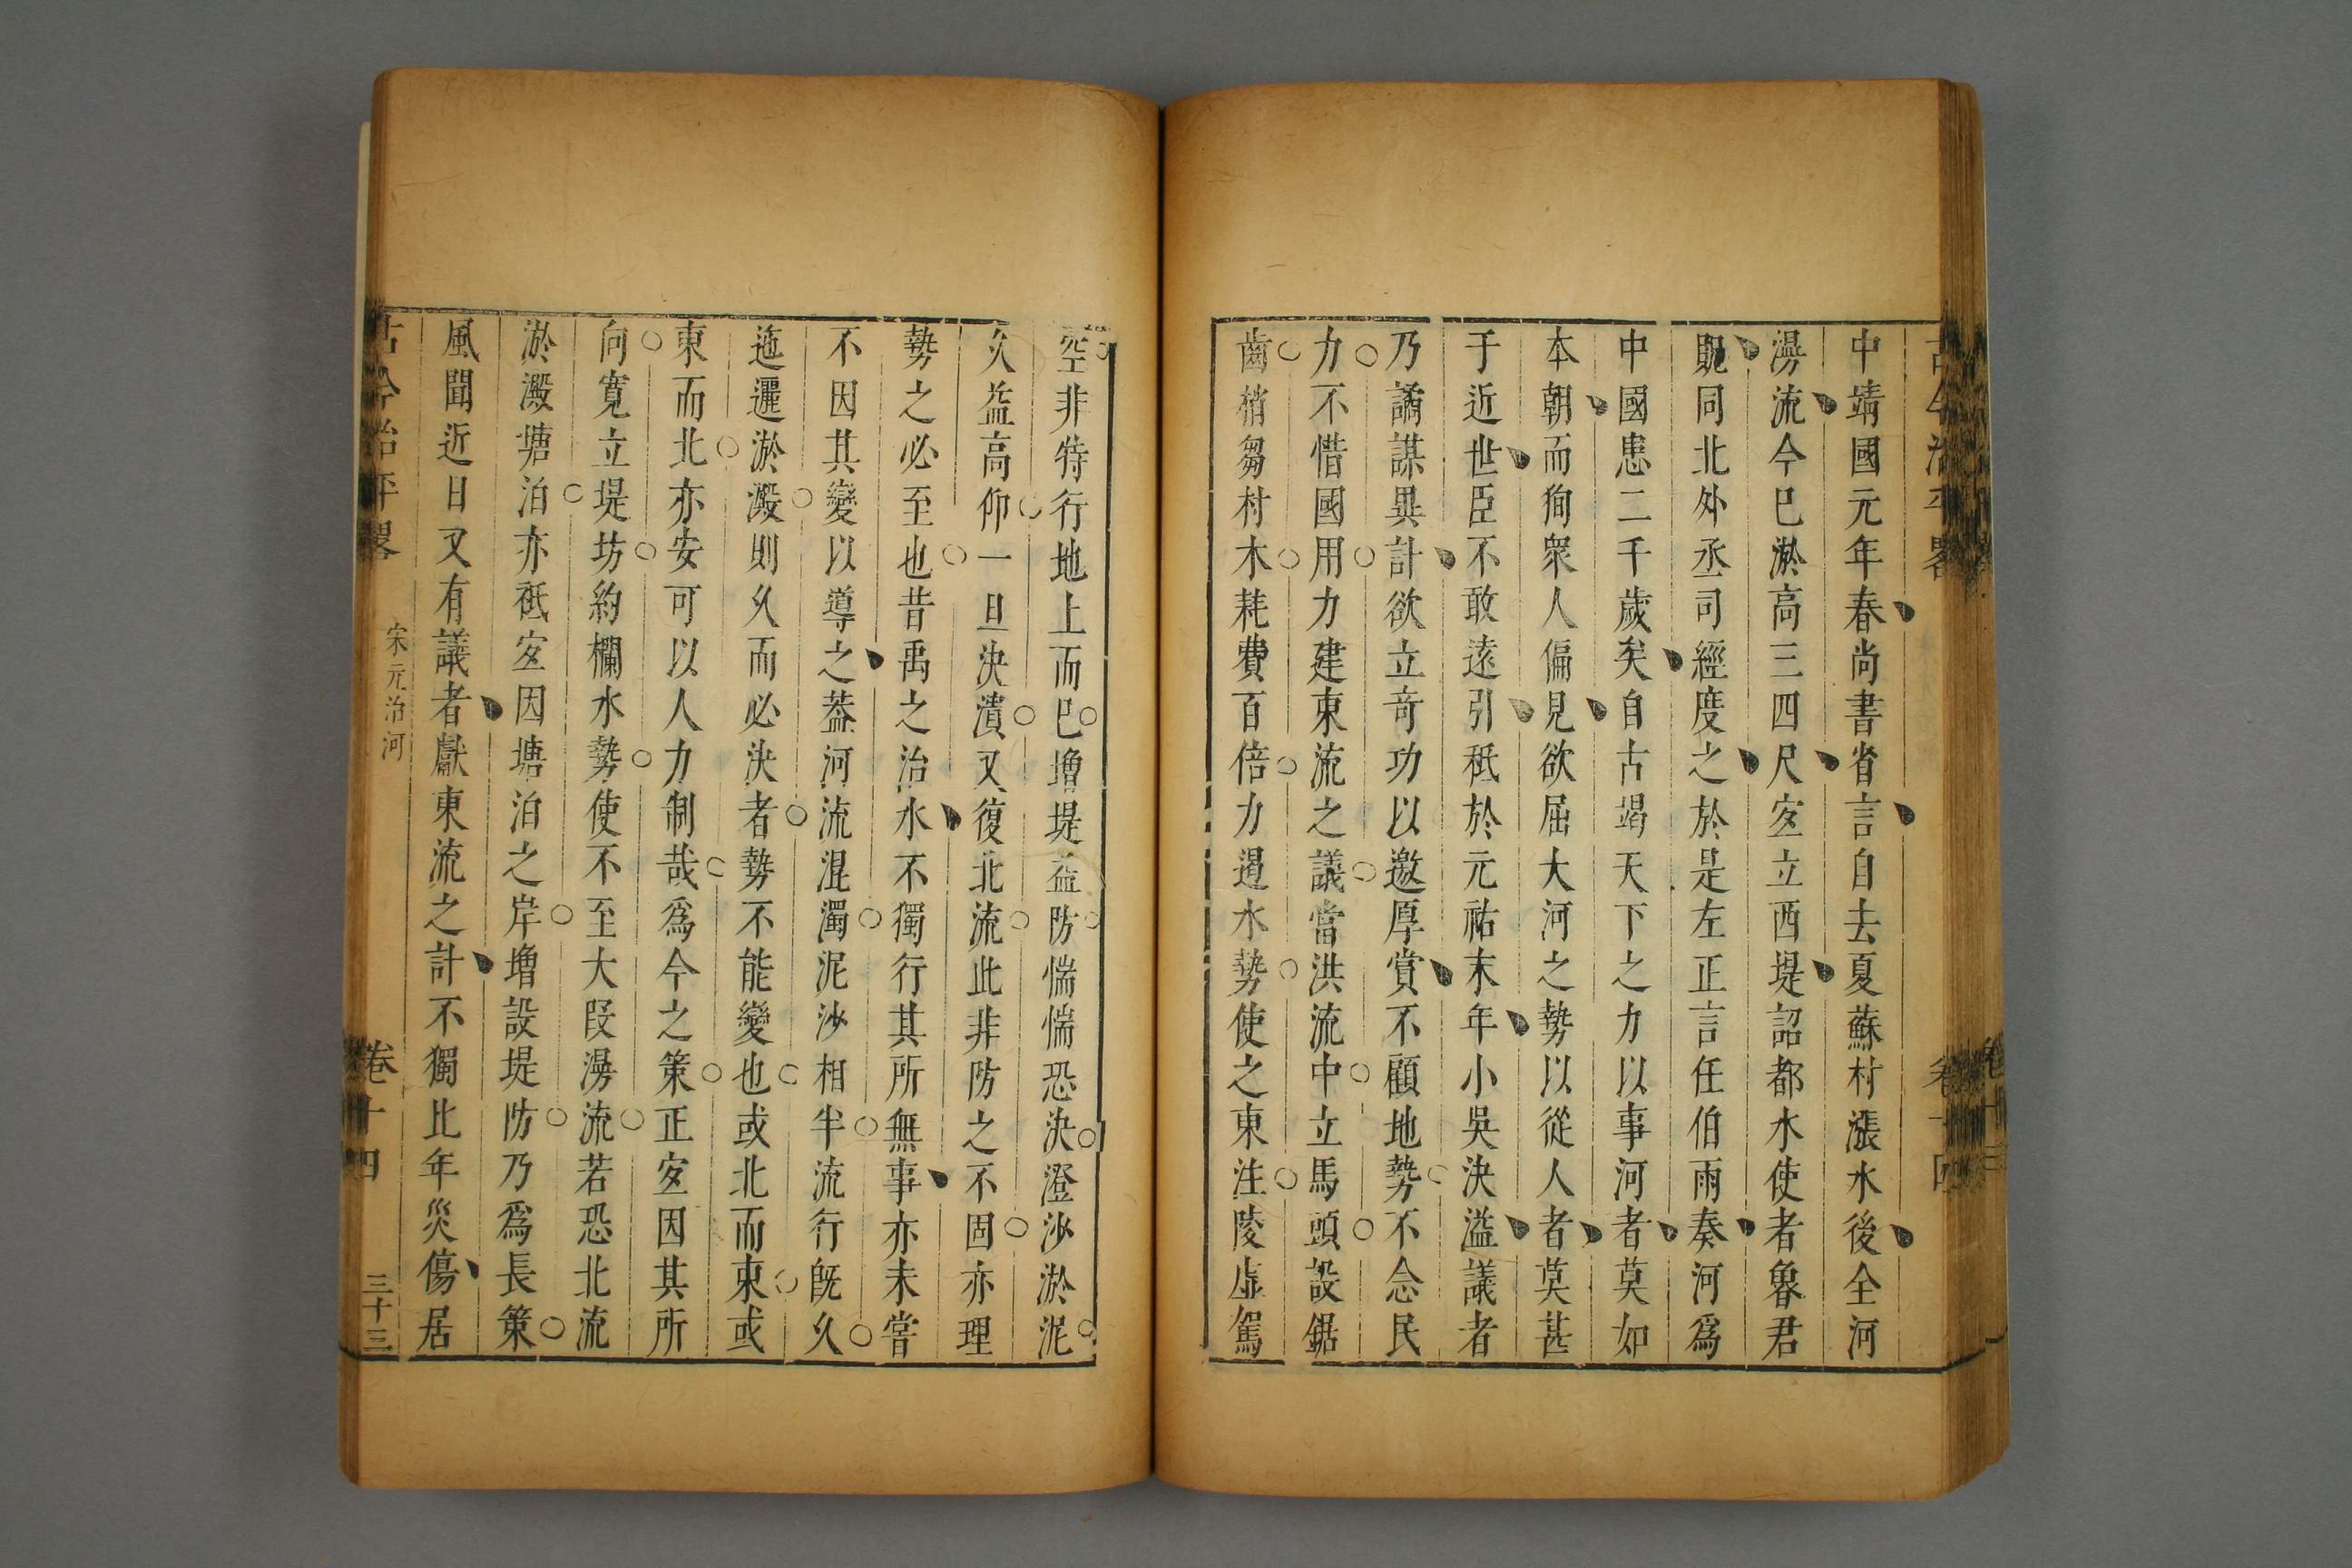 中靖國元年春尚書省言自去夏蘇村漲水後全河
漫流今已淤高三四尺宜立西堤詔都水使者魯君
貺同北外丞司經度之於是左正言任伯雨奏河爲
中國患二千歲矣自古竭天下之力以事河者莫如
本朝而狥衆人偏見欲屈大河之勢以從人者莫甚
于近世臣不敢遠引秪於元祐末年小吳決溢議者
乃譎謀異計欲立竒功以邀厚賞不顧地勢不念民
力不惜國用力建東流之議當洪流中立馬頭設鋸
齒梢芻材木耗費百倍力遏水勢使之東注陵虛駕
空非特行地上而已增堤益防惴惴恐決澄沙淤泥
久益高仰一旦決潰又復北流此非防之不固亦理
勢之必至也昔禹之治水不獨行其所無事亦未嘗
不因其變以導之葢河流混濁泥沙相半流行旣久
迤邐淤澱則久而必決者勢不能變也或北而東或
東而北亦安可以人力制哉爲今之策正宜因其所
向寬立堤坊約欄水勢使不至大段漫流若恐北流
淤澱塘泊亦秪宜因塘泊之岸增設堤防乃爲長策
風聞近日又有議者獻東流之計不獨比年災傷居
古今治平畧 宋元治河 卷十四 三十三